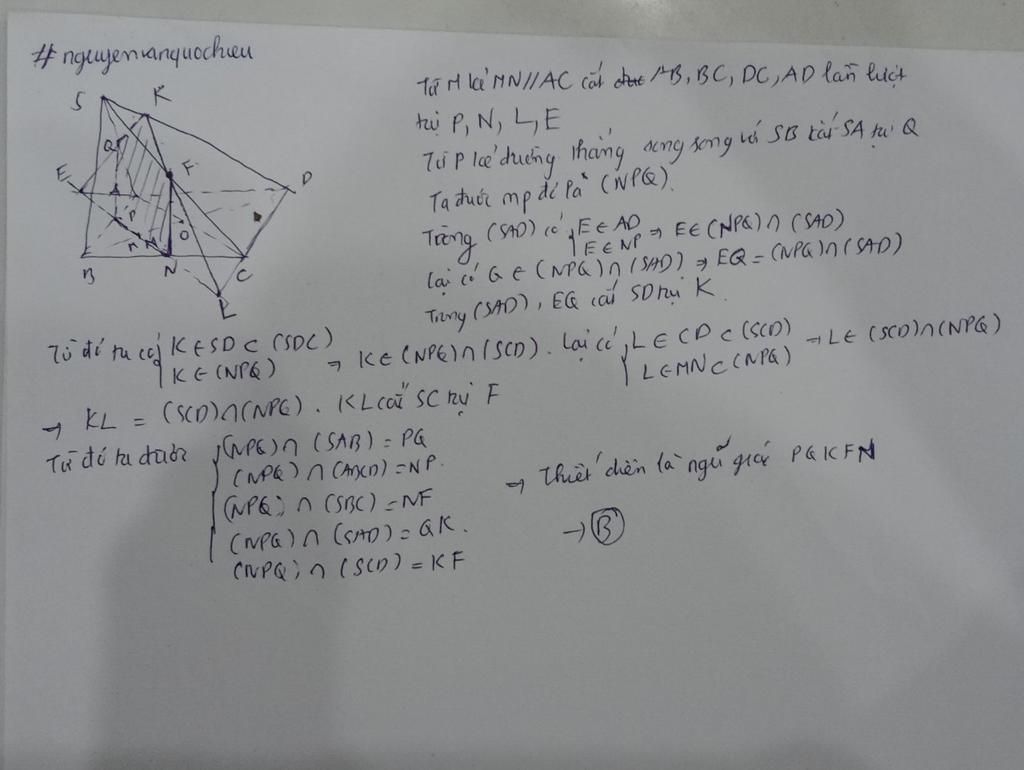 #nguyenvanquochieu
S K
Q F
E D
A
P O
M
B N C
L
Từ M kẻ MN//AC cắt AB, BC, DC, AD lần lượt
tại P, N, L, E
Từ P kẻ đường thẳng song song với SB cắt SA tại Q
Ta được mp đó là (NPQ).
Trong (SAD) có { E ∈ AD
E ∈ NP → E ∈ (NPQ) ∩ (SAD)
lại có Q ∈ (NPQ) ∩ (SAD) → EQ = (NPQ) ∩ (SAD)
Trong (SAD), EQ cắt SD tại K.
Từ đó ta có { K ∈ SD ⊂ (SDC)
K ∈ (NPQ) → K ∈ (NPQ) ∩ (SCD). Lại có { L ∈ CD ⊂ (SCD)
L ∈ MN ⊂ (NPQ) → L ∈ (SCD) ∩ (NPQ)
→ KL = (SCD) ∩ (NPQ). KL cắt SC tại F
Từ đó ta được { (NPQ) ∩ (SAB) = PQ
(NPQ) ∩ (ABCD) = NP.
(NPQ) ∩ (SBC) = NF
(NPQ) ∩ (SAD) = QK.
(NPQ) ∩ (SCD) = KF
→ Thiết diện là ngũ giác PQKFN
→ B